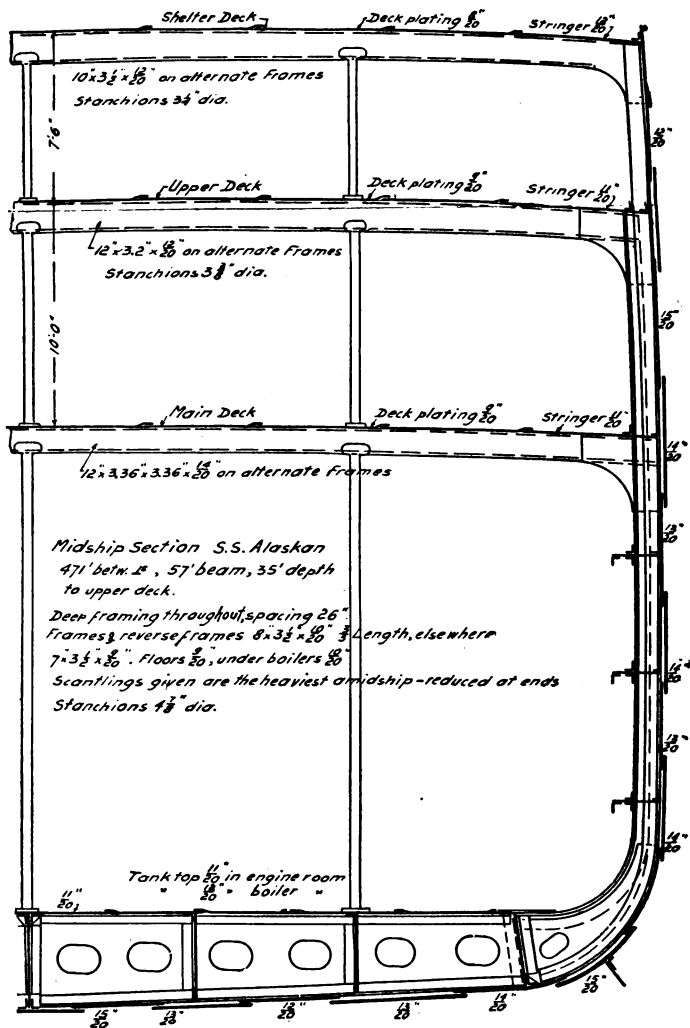 Shelter Deck
Deck plating 8/20"
Stringer
10 x 3½ x 12/20" on alternate Frames
Stanchions
dia.
7'-6"
12/20"
Upper Deck
Deck plating 9/20"
Stringer 11/20"
12" x 3.2" x 12/20" on alternate Frames
Stanchions 3
dia.
10'-0"
15/20"
Main Deck
Deck plating 9/20"
Stringer 11/20"
12" x 3.36" x 3.36" x 14/20" on alternate Frames
14/20"
13/20"
Midship Section S.S. Alaskan
471' betw. , 57' beam, 35' depth
to upper deck.
Deep framing throughout, spacing 26"
Frames & reverse frames 8" x 3½" x 10/20" ¾ Length, elsewhere
7" x 3½" x 9/20". Floors 9/20", under boilers 10/20"
Scantlings given are the heaviest amidship - reduced at ends
Stanchions 4⅞" dia.
14/20"
13/20"
14/20"
Tank top 11/20" in engine room
" 13/20" " boiler "
11/20"
15/20"
13/20"
12/20"
13/20"
14/20"
15/20"